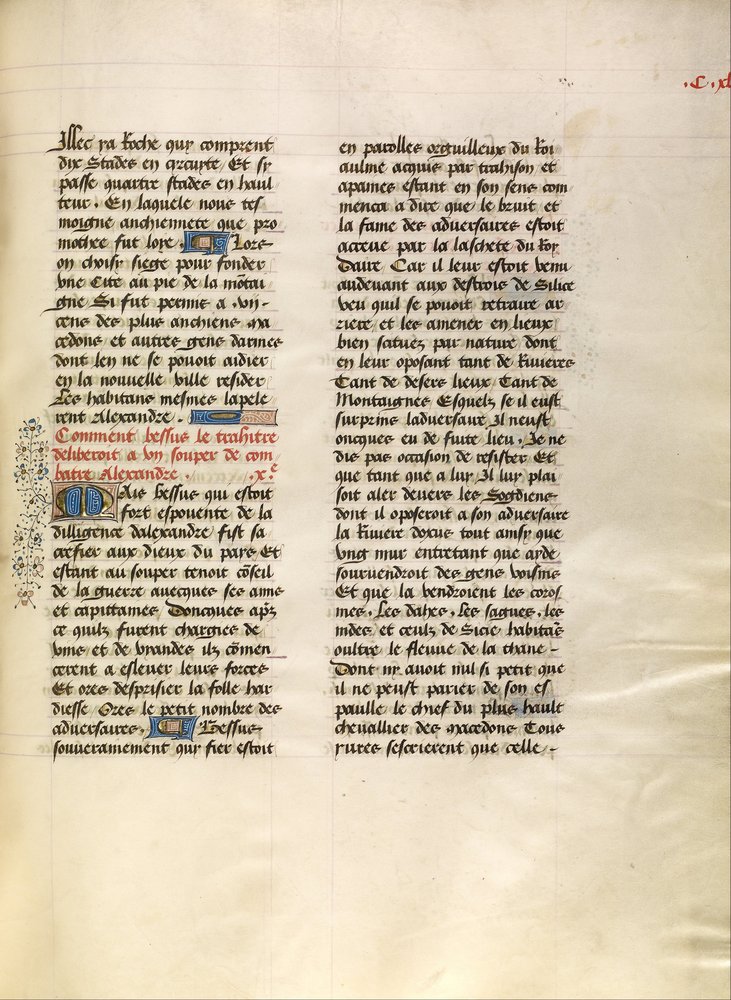 .C.xl
Illec ya Roche quy comprent
dix Stades en circuyte Et sy
passe quattre stades en haul
teur. En laquele nous tes
moigne anchiennete que pro
mothee fut loye. Lors
on choisy siege pour fonder
vne Cite au pie de la mõtai
gne Si fut permis a .vii.
cens des plus anchiens ma
cedons et autres gens darmes
dont len ne se pouoit aidier
en la nouuelle ville resider
Les habitans mesmes lapele
rent Alexandre.
Comment bessus le trahitre
deliberoit a vn souper de com
batre Alexandre. .x.e
Mais bessus qui estoit
fort espouente de la
dilligence dalexandre fist sa
crefier aux dieux du pays Et
estant au souper tenoit cõseil
de la guerre auecques ses amis
et capittaines Doncques aps̃
ce quilz furent chargies de
vins et de viandes ilz cõmen
cerent a esleuer leurs forces
Et ores desprisier la folle har
diesse Ores le petit nombre des
aduersaires. Bessus
souuerainement quy fier estoit
en parolles orguilleux du Roi
aulme acquis par trahison et
apaines estant en son sens com
menca a dire que le bruit et
la fame des aduersaires estoit
acreue par la laschete du Roy
Daire Car il leur estoit venu
audeuant aux destrois de Silice
veu quil se pouoit retraire ar
riere et les amener en lieux
bien scituez par nature dont
en leur oposant tant de Riuieres
Tant de desers lieux Tant de
Montaignes Esquelz se il eust
surprins laduersaire Il neust
oncques eu de fuite lieu. Je ne
dis pas occasion de resister Et
que tant que a luy Il luy plai
soit aler deuers les Sogdiens
dont il oposeroit a son aduersaire
la Riuiere doxus tout ainsy que
vngt mur entretant que ayde
souruendroit des gens voisins
Et que la vendroient les coros
mes. Les dahes. Les sagues. les
indes et ceulz de Sicie habitãs
oultre le fleuue de la thane -
Dont ny auoit nul si petit que
il ne peust parier de son es
paulle le chief du plus hault
cheuallier des macedons Tous
yures sescrierent que celle -